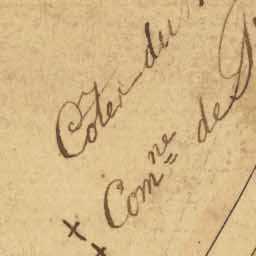 Côtes du
Com^ne de